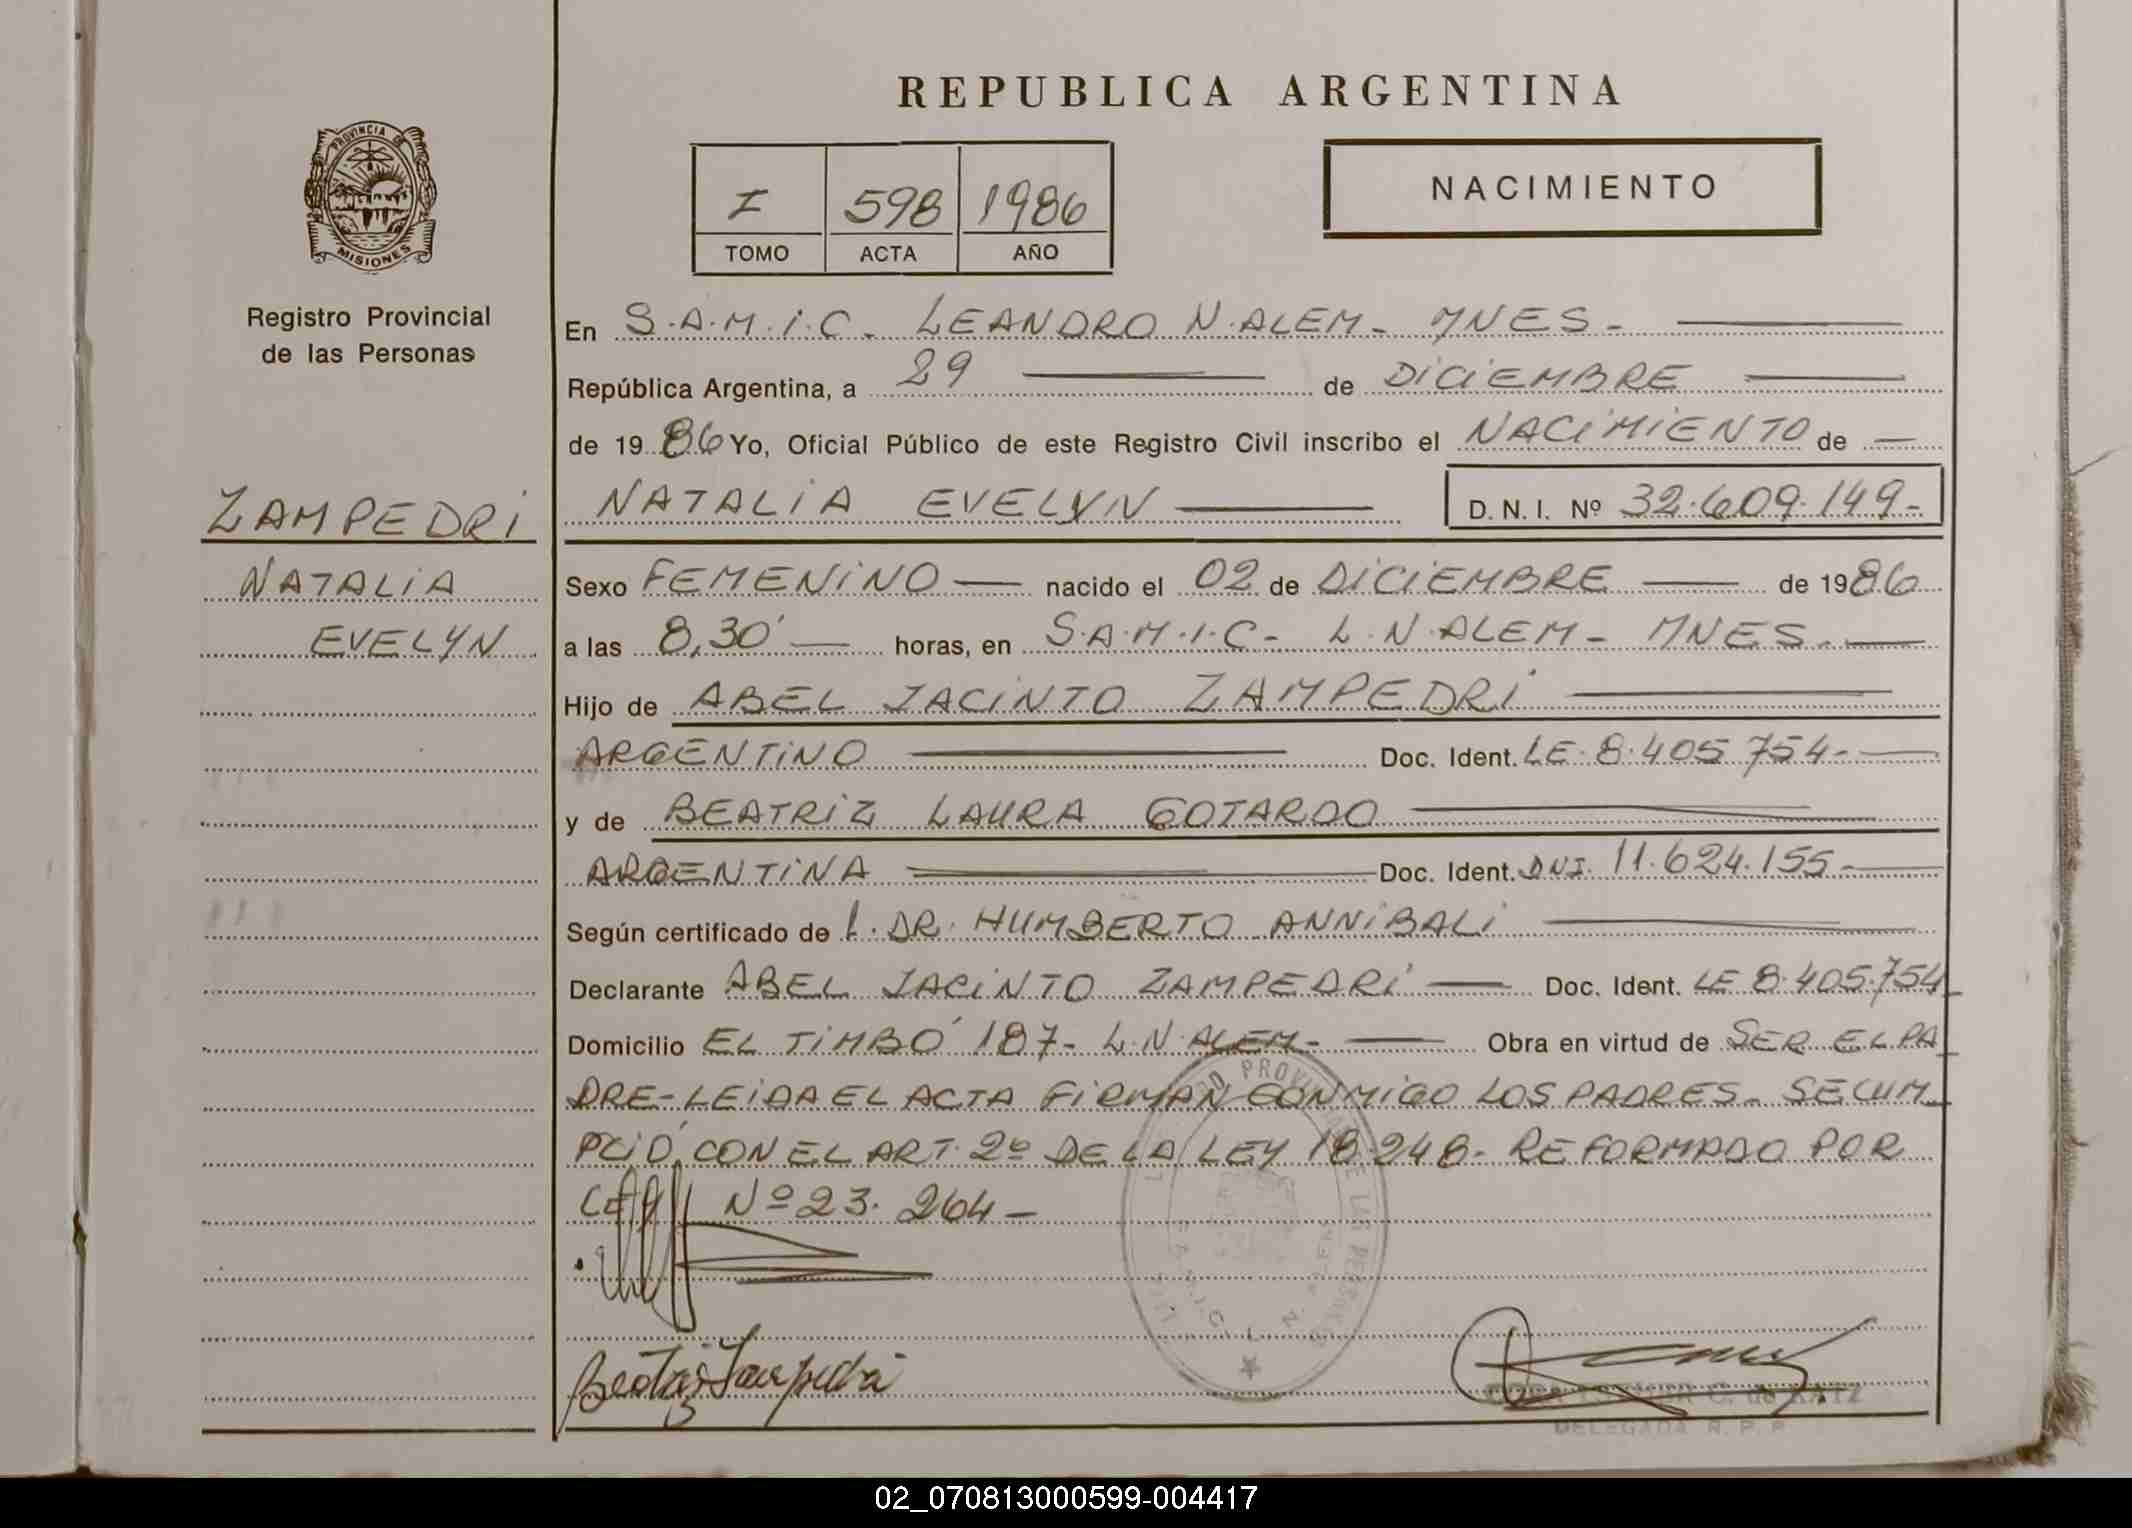 REPUBLICA ARGENTINA
PROVINCIA DE
MISIONES
Registro Provincial
de las Personas
I 598 1986
TOMO ACTA AÑO
NACIMIENTO
ZAMPEDRI
NATALIA
EVELYN
En S.A.M.I.C. LEANDRO N. ALEM - MNES -
República Argentina, a 29 de DICIEMBRE
de 1986 Yo, Oficial Público de este Registro Civil inscribo el NACIMIENTO de
NATALIA EVELYN D. N. I. Nº 32.609.149-
Sexo FEMENINO nacido el 02 de DICIEMBRE de 1986
a las 8,30' horas, en S.A.M.I.C- L.N. ALEM - MNES.
Hijo de ABEL JACINTO ZAMPEDRI
ARGENTINO Doc. Ident. LE. 8.405.754-
y de BEATRIZ LAURA GOTARDO
ARGENTINA Doc. Ident. DNI. 11.624.155-
Según certificado de DR. HUMBERTO ANNIBALI
Declarante ABEL JACINTO ZAMPEDRI Doc. Ident. LE 8.405.754
Domicilio EL TIMBÓ 187- L.N. ALEM- Obra en virtud de SER EL PA
DRE- LEIDA EL ACTA FIRMAN CONMIGO LOS PADRES- SE CUM
PLIÓ CON EL ART. 2º DE LA LEY 18.248- REFORMADO POR
LEY Nº 23.264-
Beatriz Zampedri
DELEGADA R. P. P.
02_070813000599-004417